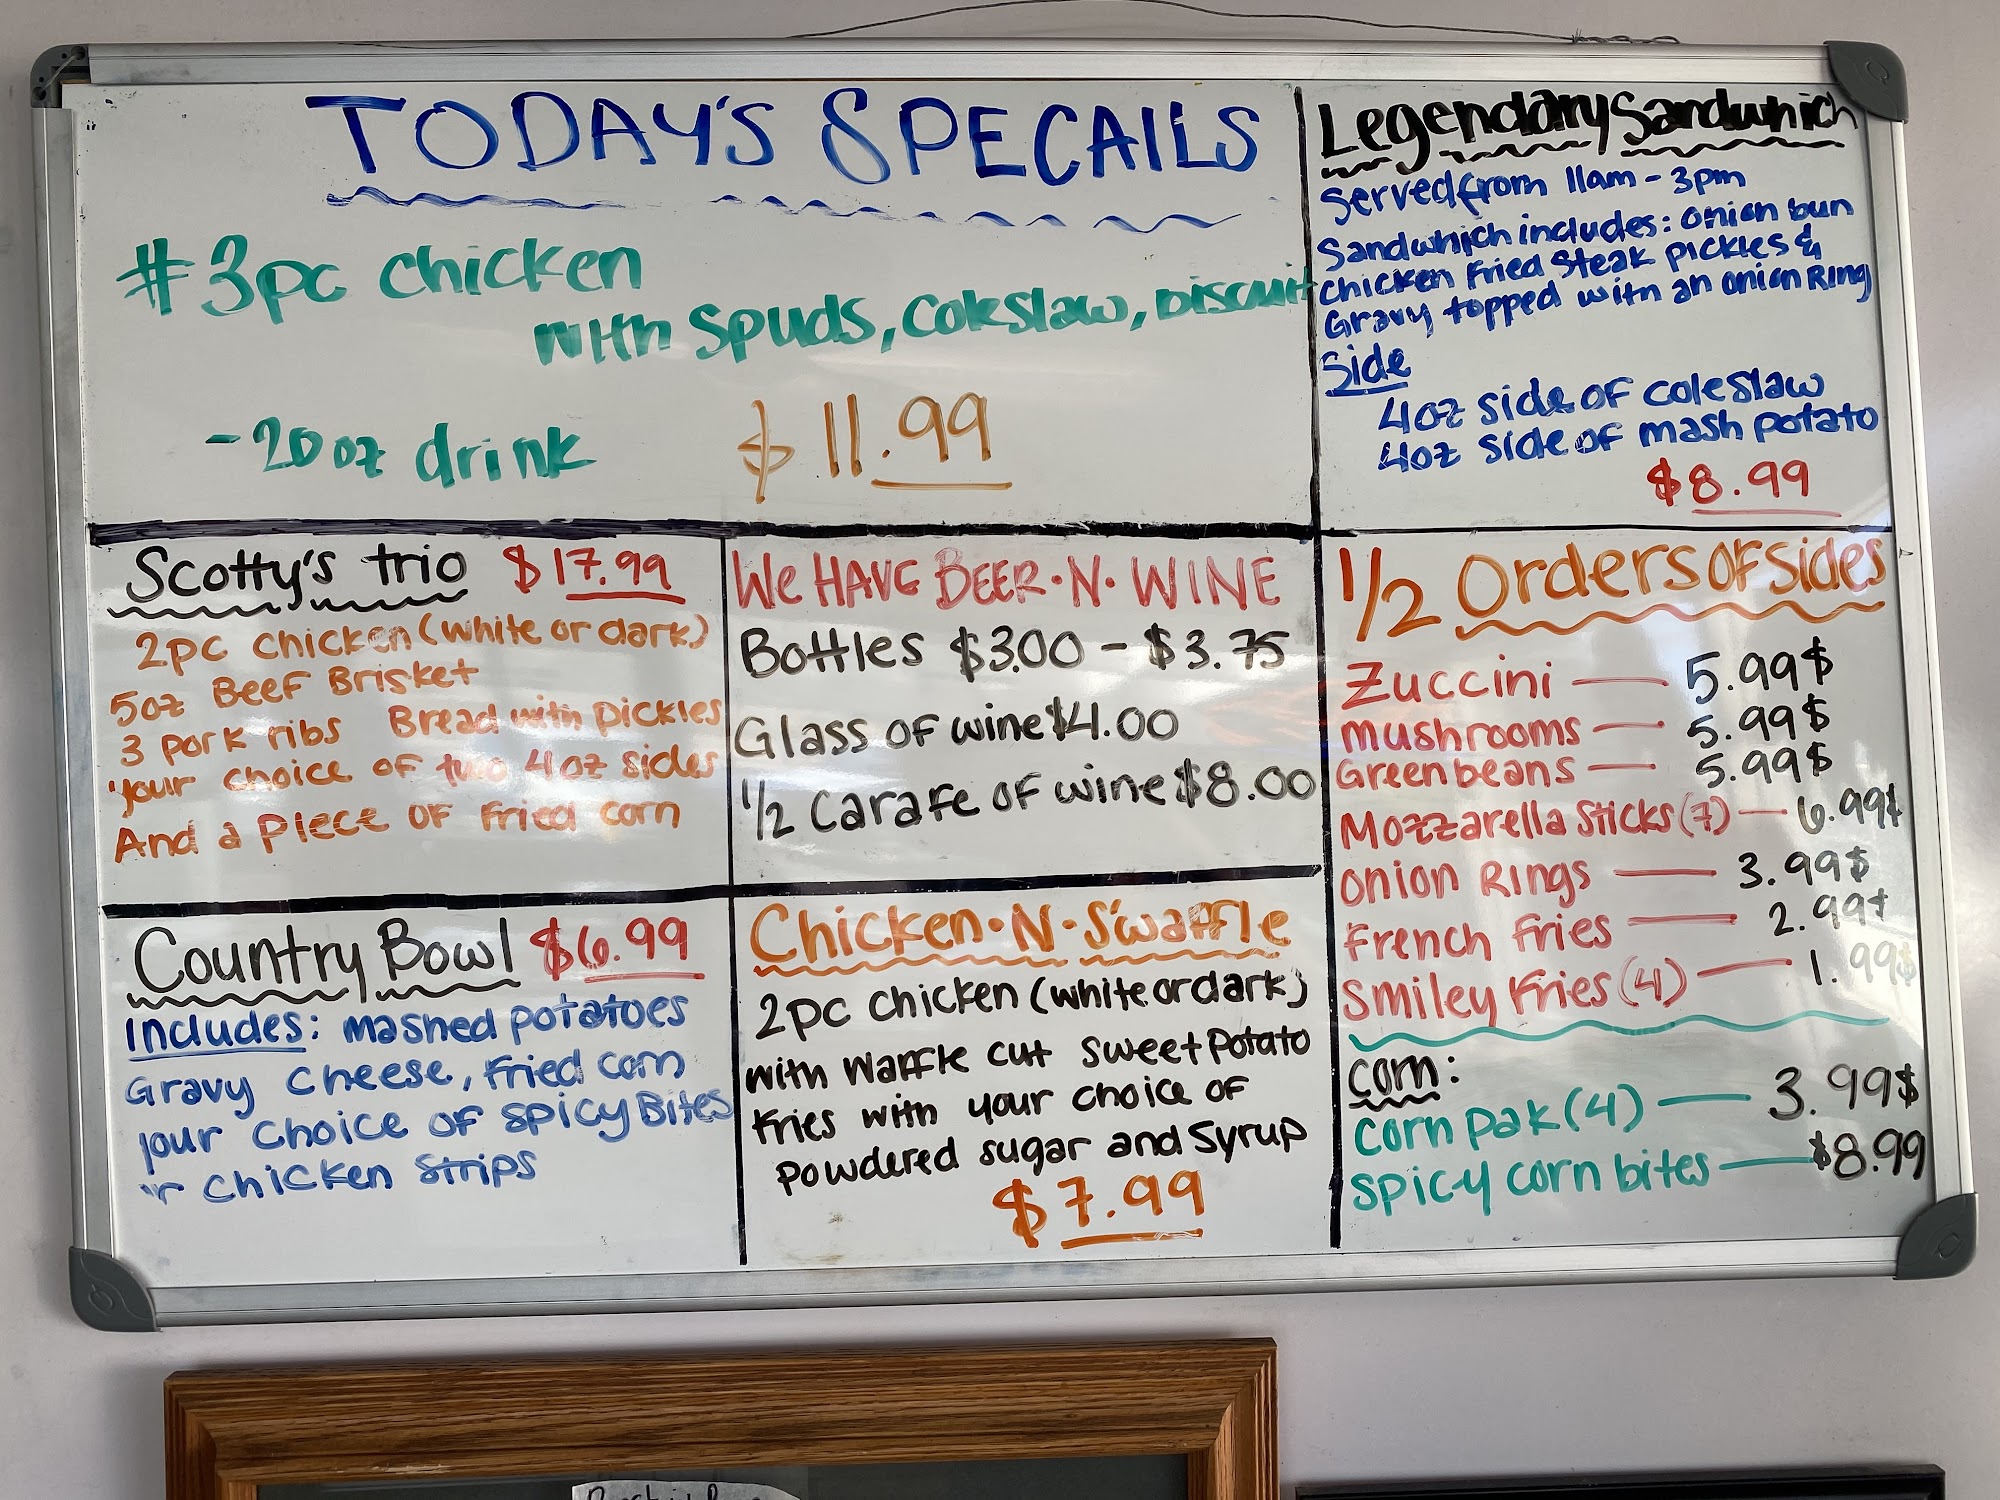 TODAY'S SPECAILS
#3pc chicken
with spuds, coleslaw, biscuit
-20oz drink $11.99
Legendary Sandwhich
Served from 11am - 3pm
Sandwhich includes: onion bun
chicken fried steak pickles &
Gravy topped with an onion Ring
Side
4oz side of coleslaw
4oz side of mash potato
$8.99
Scotty's trio $17.99
2pc chicken (white or dark)
5oz Beef Brisket
3 pork ribs Bread with pickles
your choice of two 4oz sides
And a piece of fried corn
We HAVE BEER·N·WINE
Bottles $3.00 - $3.75
Glass of wine $4.00
1/2 Carafe of wine $8.00
1/2 Orders of sides
Zuccini — 5.99$
mushrooms — 5.99$
Greenbeans — 5.99$
Mozzarella Sticks (7) — 6.99$
onion Rings — 3.99$
french fries — 2.99$
smiley fries (4) — 1.99$
corn:
corn pak (4) — 3.99$
spicy corn bites — $8.99
Country Bowl $6.99
Includes: mashed potatoes
Gravy cheese, fried corn
your choice of spicy Bites
or chicken strips
Chicken·N·S'waffle
2pc chicken (white or dark)
with waffle cut sweet potato
fries with your choice of
powdered sugar and syrup
$7.99